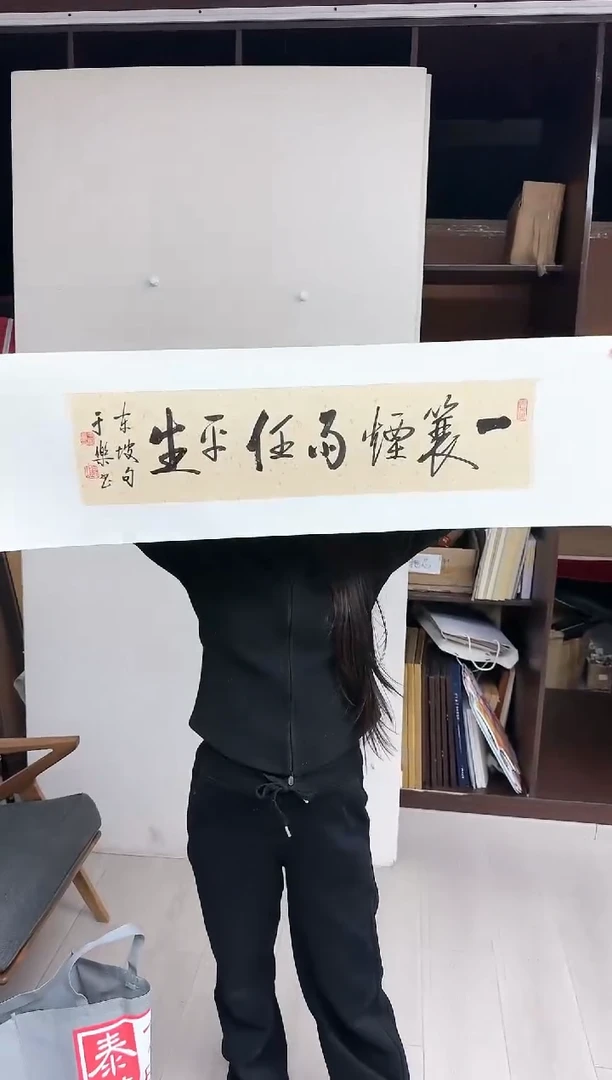 一蓑煙雨任平生
东坡句
于樂书
泰